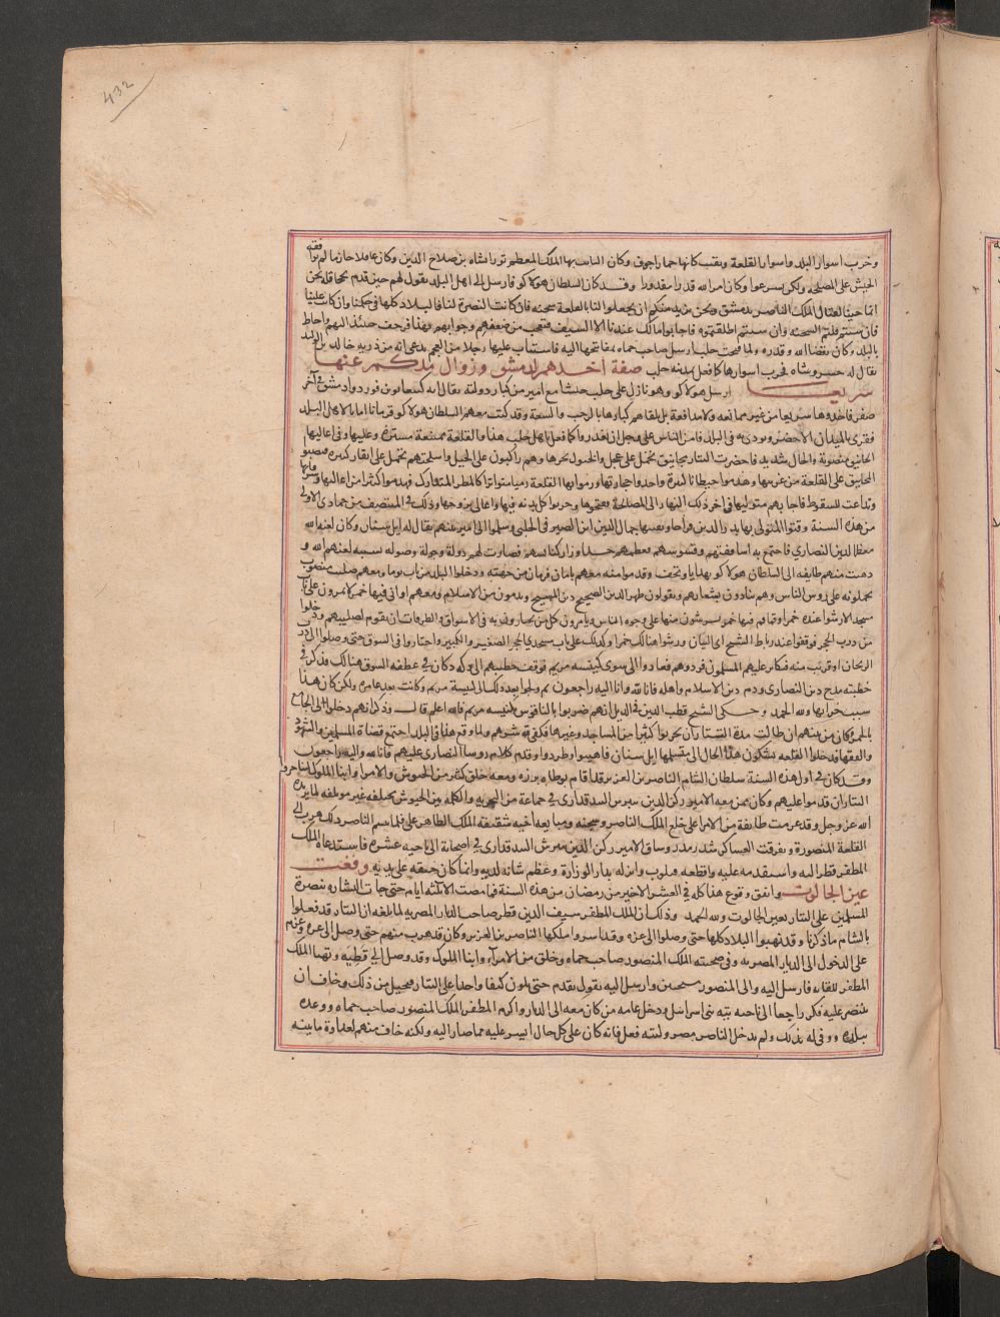 432
وخرب اسوار البلد واسوار القلعة وبقيت كانها حمار اجوف وكان النائب بها الملك المعظم توران شاه بن صلاح الدين وكان عاقلا حازما لم يوافقه
الجيش على المصلحة ولكن تسرعوا وكان امر الله قدرا مقدورا وقد كان السلطان هولاكو قد ارسل الى اهل البلد يقول لهم حين قدم بجحافله نحن
انما جينا لقتال الملك الناصر بدمشق ونحن نريد منكم ان تجعلوا لنا بالقلعة شحنة فان كانت النصرة لنا فالبلاد كلها في حكمنا وان كانت علينا
فان شئتم قتلتم الشحنة وان شئتم اطلقتموه فاجابوا مالك عندنا الا السيف فتعجب من ضعفهم وجوابهم وبهذا فزحف حينئذ اليهم واحاط
بالبلد وكان بقضا الله وقدره ولما فتحت حلب ارسل صاحب حماه بمفاتيحها اليه فاستناب عليها رجلا من العجم يدعي انه من ذرية خالد بن الوليد
يقال له خسروشاه فخرب اسوارها كما فعل بمدينة حلب صفة اخذهم لدمشق وزوال ملكهم عنها
سريعا ارسل هولاكو وهو نازل على حلب جيشا مع امير من كبار دولته يقال له كتبغا نوين فوردوا دمشق في آخر
صفر فاخذوها سريعا من غير ممانعة ولا مدافعة بل تلقاهم كبارها بالرحب والسعة وقد كتب معهم السلطان هولاكو فرمانا امانا لاهل البلد
فقري بالميدان الاخضر ونودي به في البلد فامن الناس على وجل ان يغدروا كما فعل اهل حلب هذا والقلعة ممتنعة مستورة وعليها وفي اعاليها
المجانيق منصوبة والحال شديدة فاحضرت التتار مجانيق تحمل على عجل والخيول تجرها وهم راكبون على الخيل واسلحتهم تحمل على ابقار كثيرة فنصبوا
المجانيق على القلعة من غربيها وهدموا حيطانا كثيرة واخذوا حجارتها ورموا بها القلعة رميا متواترا كالمطر المتدارك فهدموا كثيرا من اعاليها وشرافاتها
وتداعت للسقوط فاجابهم متوليها في اخر ذلك النهار الى المصالحة ففتحوها وخربوا كل بدنة فيها واعالي بروجها وذلك في المنتصف من جمادي الاولى
من هذه السنة وقتلوا المتولى بها بدر الدين قراجا ونقيبها جمال الدين ابن الصيرفي الحلبي وسلموا الى امير منهم يقال له ايل سنان وكان لعنه الله
معظما لدين النصاري فاجتمع به اساقفتهم وقسوسهم فعظمهم جدا وزار كنائسهم فصارت لهم دولة وجولة وصولة بسببه لعنهم الله و
ذهبت منهم طايفة الى السلطان هولاكو بهدايا وتحف وقدموا منه معهم بامان فرمان من جهته ودخلوا البلد من باب توما ومعهم صليب منصوب
يحملونه على روس الناس وهم ينادون بشعارهم ويقولون ظهر الدين الصحيح دين المسيح ويذمون من الاسلام ومعهم اواني فيها خمر لا يمرون على باب
مسجد الا رشوا عنده خمرا وقماقم فيها خمر يرشون منها على وجوه الناس ويامرون كل من يجتازون به في الاسواق والطرقات ان يقوم لصليبهم ودخلوا
من درب الحجر فوقفوا عند رباط الشيخ ابى البيان ورشوا هنالك خمرا وكذلك على باب مسجدي الحجر الصغير والكبير واجتازوا في السوق حتى وصلوا الى درب
الريحان او قريب منه فتكاثر عليهم المسلمون فردوهم فعادوا الى سوق كنيسة مريم فوقف خطيبهم الى دكة دكان في عطفة السوق هنالك فذكر في
خطبته مدح دين النصارى وذم دين الاسلام واهله فانا لله وانا اليه راجعون ثم ولجوا بعد ذلك الى كنيسة مريم وكانت بعد عامرة ولكن كان هذا
سبب خرابها ولله الحمد وحكى الشيخ قطب الدين في الذيل انهم ضربوا بالناقوس بكنيسة مريم فالله اعلم قال وذكر انهم دخلوا الى الجامع
بالخمر وكان من نيتهم ان طالت مدة التتار ان يخربوا كثيرا من المساجد وغيرها فكفى الله شرهم ولما وقع هذا في البلد اجتمع قضاة المسلمين والشهود
والفقها فدخلوا القلعة يشكون هذا الحال الى متسلمها ايل سنان فاهينوا وطردوا وقدم كلام روسا النصارى عليهم فانا لله وانا اليه راجعون
وقد كان في اول هذه السنة سلطان الشام الناصر بن العزيز قد اقام بوطاه برزه ومعه خلق كثير من الجيوش والامرا وابنا الملوك ليناجزوا
التتار ان قدموا عليهم وكان ممن معه الامير ركن الدين بيبرس البندقداري في جماعة من البحريه والكلمة بين الجيوش مختلفة غير موتلفة لما يريده
الله عز وجل وقد عزمت طايفة من الامرا على خلع الملك الناصر وسجنه ومبايعة اخيه شقيقه الملك الظاهر علي فلما شم الناصر ذلك هرب الى
القلعة المنصورة وتفرقت العساكر شذر مذر وساق الامير ركن الدين بيبرس البندقداري في اصحابه الى ناحيه غزه فاستدعاه الملك
المظفر قطز اليه واستقدمه عليه واقطعه قليوب وانزله بدار الوزارة وعظم شانه لديه وانما كان حتفه على يديه وقعت
عين الجالوت واتفق وقوع هذا كله في العشر الاخير من رمضان من هذه السنة فما مضت الا ثلثة ايام حتى جات البشارة بنصرة
المسلمين على التتار بعين الجالوت ولله الحمد وذلك ان الملك المظفر سيف الدين قطز صاحب الديار المصرية لما بلغه ان التتار قد فعلوا
بالشام ما ذكرنا وقد نهبوا البلاد كلها حتى وصلوا الى غزه وقد اسروا ملكها الناصر بن العزيز وكان قد هرب منهم حتى وصل الى غزه وعزم
على الدخول الى الديار المصرية وفي صحبته الملك المنصور صاحب حماه وخلق من الامرآء وابنا الملوك وقد وصل الى قطية وتهيا الملك
المظفر للقايه فارسل اليه والى المنصور مستحثين وارسل اليه يقول تقدم حتى نكون كتفا واحدا على التتار فتخيل من ذلك وخاف ان
ينتصر عليه فكر راجعا الى ناحية تيه بني اسرائيل ودخل عامة من كان معه الى الديار واكرم المظفر الملك المنصور صاحب حماه ووعده
ببلده ووفى له بذلك ولم يدخل الناصر مصر وليته فعل فانه كان على كل حال ايسر عليه مما صار اليه ولكنه خاف منهم لعداوة ما بينه